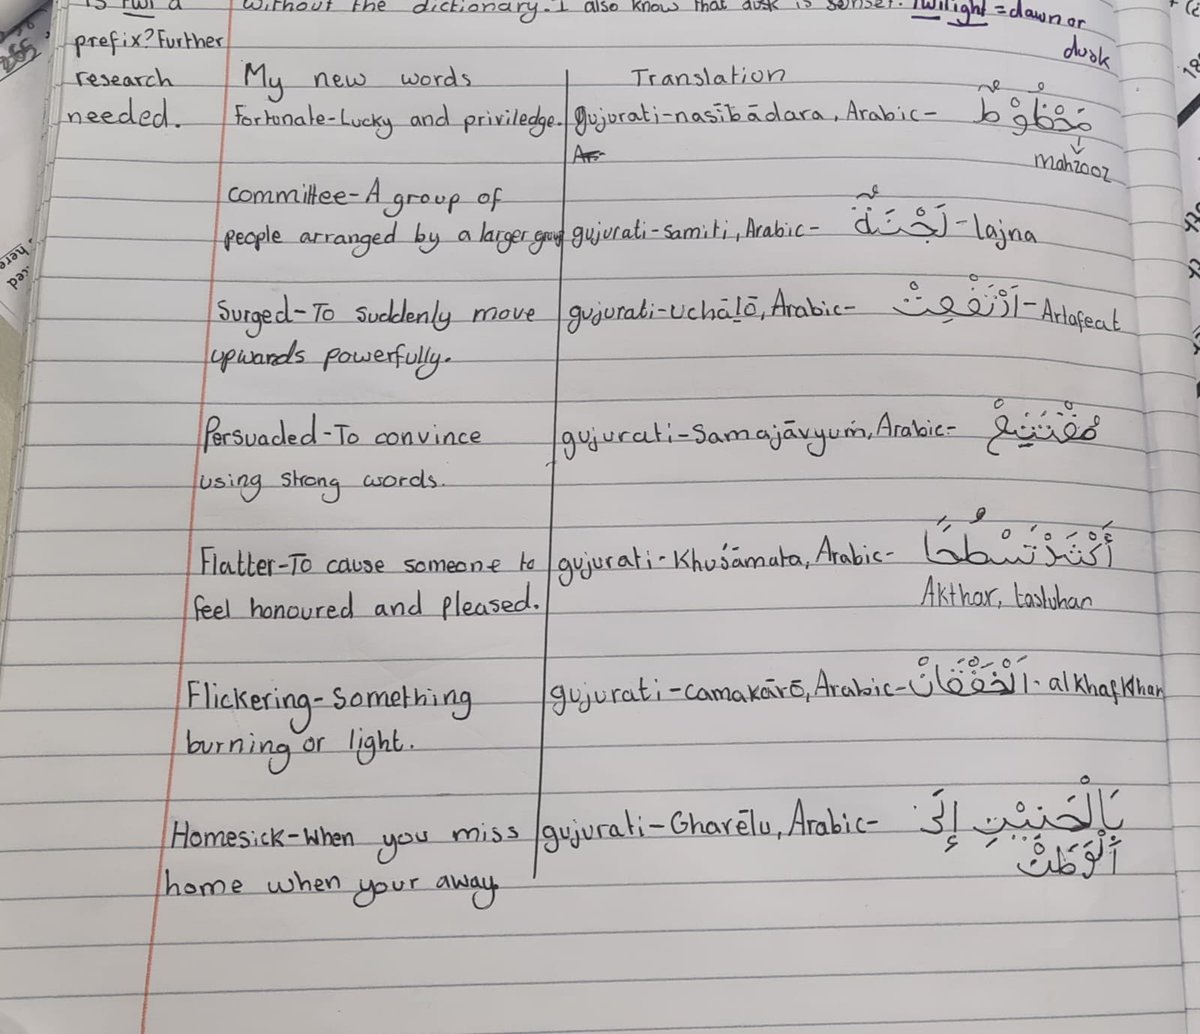 is twi a without the dictionary. I also know that dusk is sunset. Twilight = dawn or
prefix? Further dusk
research My new words Translation
needed. Fortunate-Lucky and priviledge. gujurati-nasībādara, Arabic- مَحْظُوْظٌ
mahzooz
committee-A group of
people arranged by a larger group gujurati-samiti, Arabic- لَجْنَةٌ - lajna
Surged-To suddenly move gujurati-uchāḷō, Arabic- اَرْتَفَعِتْ - Artafeat
upwards powerfully.
Persuaded-To convince gujurati-Samajāvyuṁ, Arabic- مُقْتَنِعْ
using strong words.
Flatter-To cause someone to gujurati-Khuśāmata, Arabic- أَكْثَرْ تَسْطُحًا
feel honoured and pleased. Akthar, tastuhan
Flickering-Something gujurati-camakārō, Arabic- اَلْخَفَقَانْ - al Khafkhan
burning or light.
Homesick-When you miss gujurati-Gharēlu, Arabic- بَالْحَنَيْنِ إِلَى
home when your away. اَلْوَطَنْ